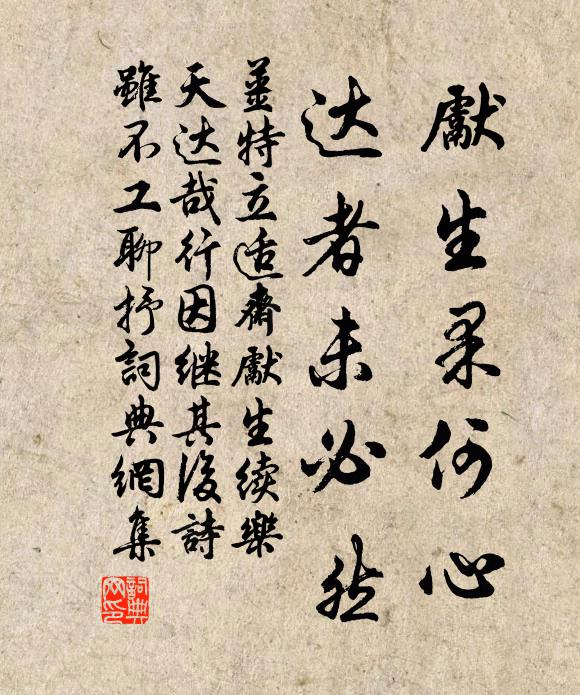 獻生果何心
达者未必然
薑特立适齋獻生续樂
天达哉行因继其後詩
雖不工聊抒詞典網集
詞典网印